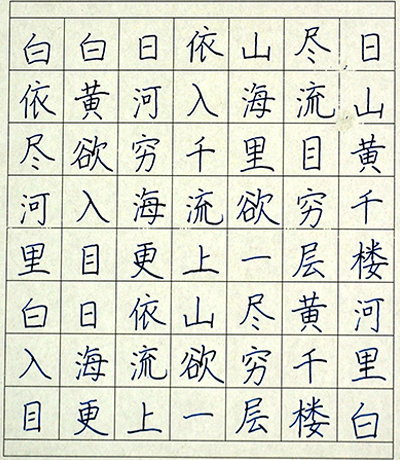 白白日依山尽日
依黄河入海流山
尽欲穷千里目黄
河入海流欲穷千
里目更上一层楼
白日依山尽黄河
入海流欲穷千里
目更上一层楼白